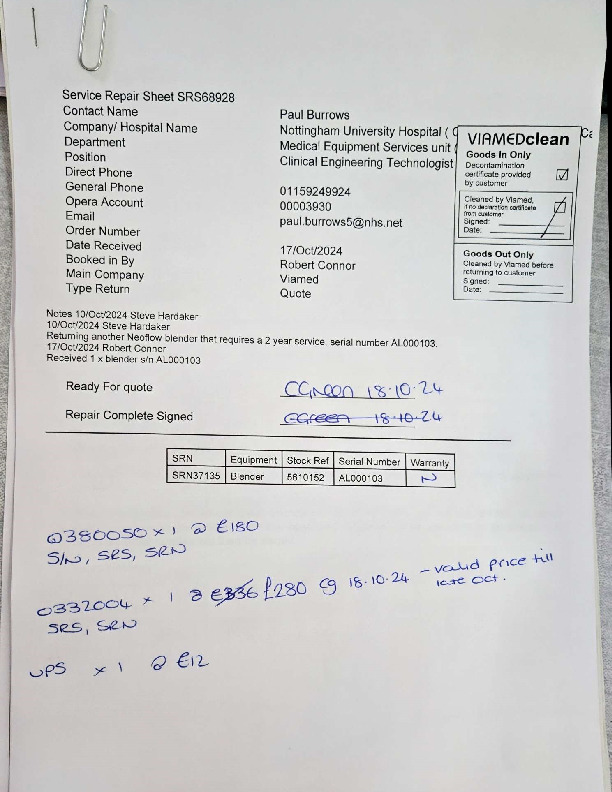 Service Repair Sheet SRS68928
Contact Name Paul Burrows
Company/ Hospital Name Nottingham University Hospital ( C
Department Medical Equipment Services unit (
Position Clinical Engineering Technologist
Direct Phone
General Phone 01159249924
Opera Account 00003930
Email paul.burrows5@nhs.net
Order Number
Date Received 17/Oct/2024
Booked in By Robert Connor
Main Company Viamed
Type Return Quote
Ca
VIAMEDclean
Goods In Only
Decontamination
certificate provided
by customer
Cleaned by Viamed,
if no declaration certificate
from customer
Signed:
Date:
Goods Out Only
Cleaned by Viamed before
returning to customer
Signed:
Date:
Notes 10/Oct/2024 Steve Hardaker
10/Oct/2024 Steve Hardaker
Returning another Neoflow blender that requires a 2 year service, serial number AL000103.
17/Oct/2024 Robert Connor
Received 1 x blender s/n AL000103
Ready For quote CGreen 18.10.24
Repair Complete Signed CGreen 18.10.24
SRN Equipment Stock Ref Serial Number Warranty
SRN37135 Blender 5610152 AL000103 N
0380050 x 1 @ £180
S/N, SRS, SRN
0332004 x 1 @ £336 £280 CG 18.10.24 - valid price till
late Oct.
SRS, SRN
UPS x 1 @ £12